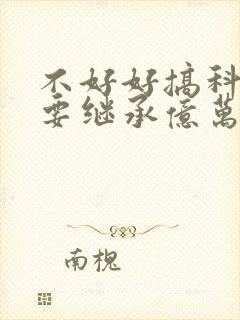 不好好搞科
要继承億萬
南槐